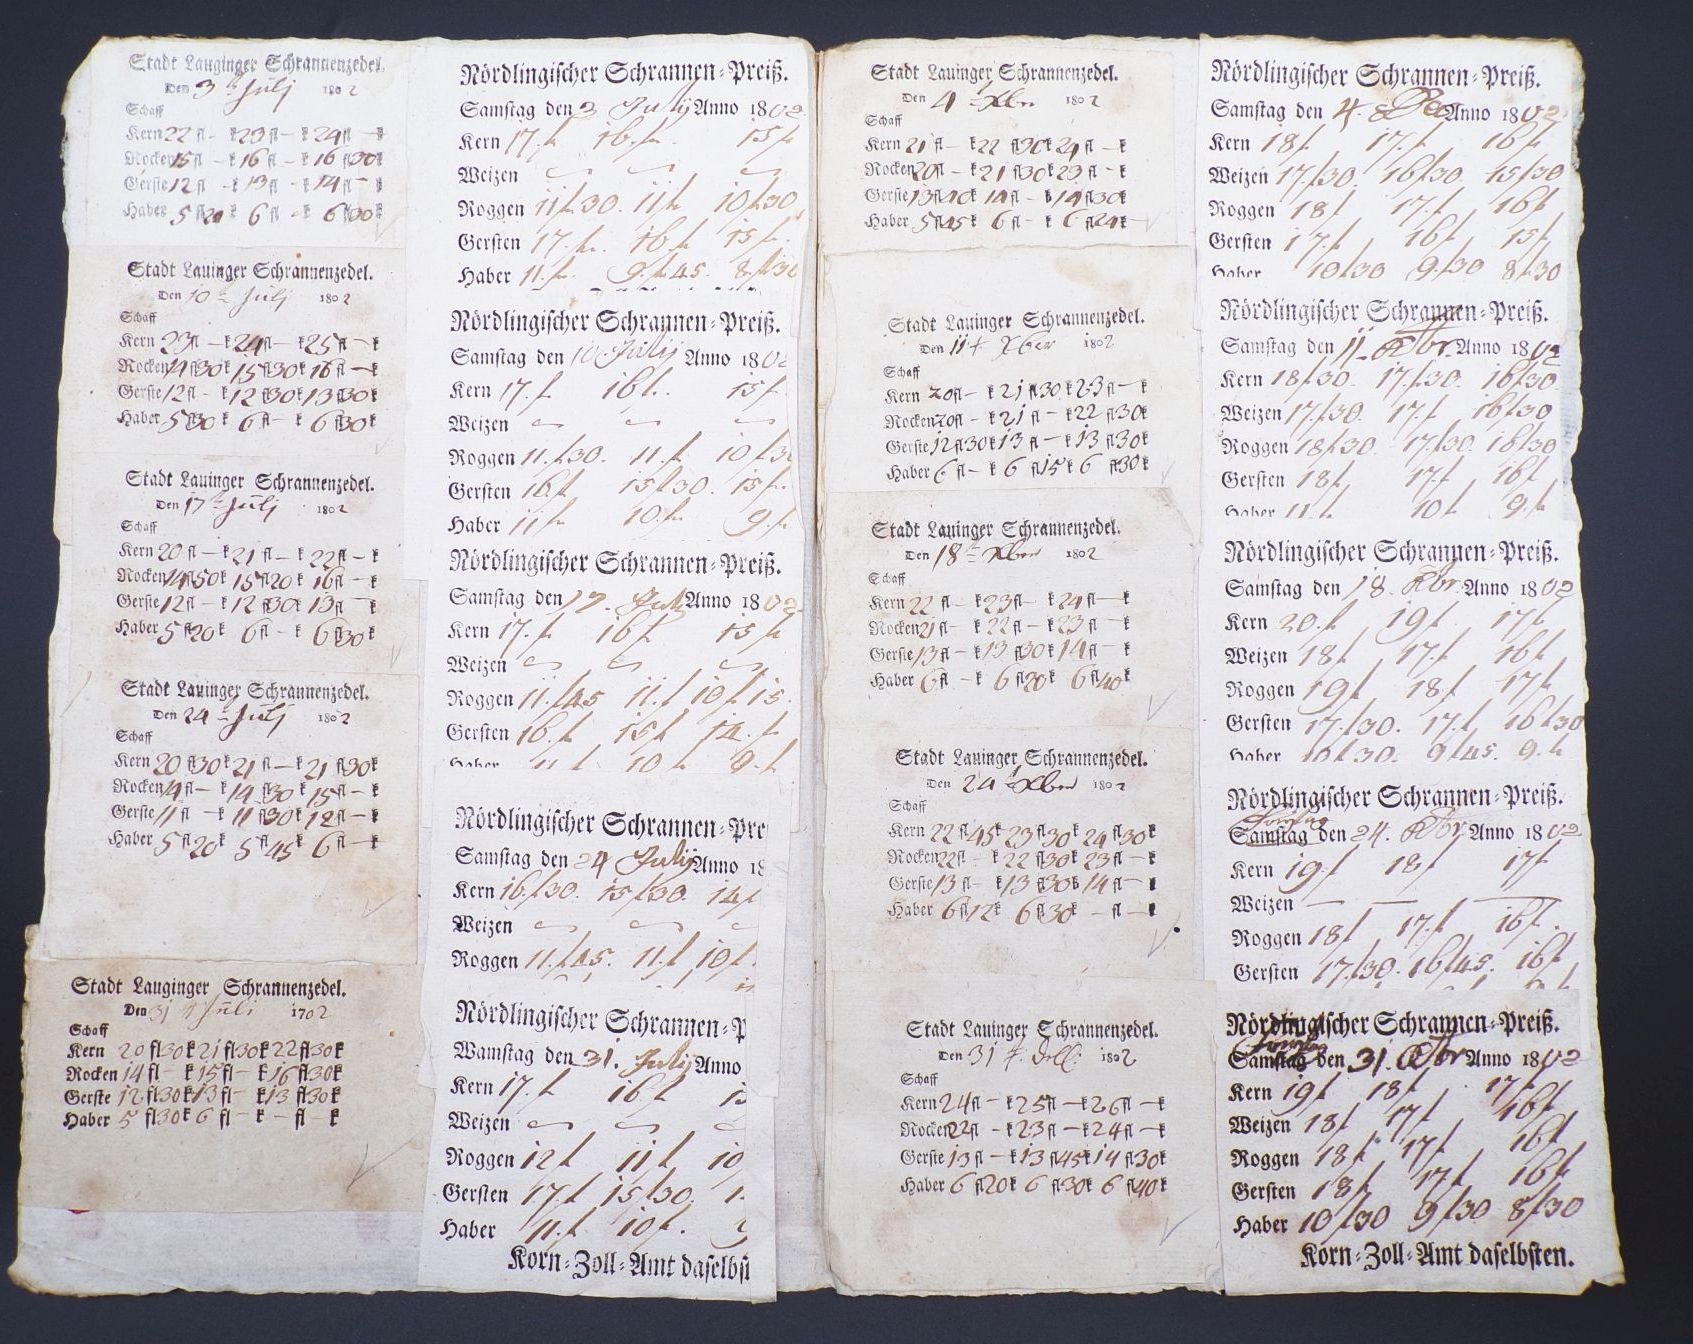 Stadt Lauginger Schrannenzedel.
Den 3 July 1802
Schaff
Kern 22 fl – k 23 fl – k 24 fl – k
Rocken 15 fl – k 16 fl – k 16 fl 30 k
Gerste 12 fl – k 13 fl – k 14 fl – k
Haber 5 fl 20 k 6 fl – k 6 fl 30 k
Stadt Lauinger Schrannenzedel.
Den 10 July 1802
Schaff
Kern 23 fl – k 24 fl – k 25 fl – k
Rocken 14 fl 30 k 15 fl 30 k 16 fl – k
Gerste 12 fl – k 12 fl 30 k 13 fl 30 k
Haber 5 fl 30 k 6 fl – k 6 fl 30 k
Stadt Lauinger Schrannenzedel.
Den 17 July 1802
Schaff
Kern 20 fl – k 21 fl – k 22 fl – k
Rocken 14 fl 50 k 15 fl 20 k 16 fl – k
Gerste 12 fl – k 12 fl 30 k 13 fl – k
Haber 5 fl 20 k 6 fl – k 6 fl 30 k
Stadt Lauinger Schrannenzedel.
Den 24 July 1802
Schaff
Kern 20 fl 30 k 21 fl – k 21 fl 30 k
Rocken 14 fl – k 14 fl 30 k 15 fl – k
Gerste 11 fl – k 11 fl 30 k 12 fl – k
Haber 5 fl 20 k 5 fl 45 k 6 fl – k
Stadt Lauginger Schrannenzedel.
Den 31 Juli 1702
Schaff
Kern 20 fl 30 k 21 fl 30 k 22 fl 30 k
Rocken 14 fl – k 15 fl – k 16 fl 30 k
Gerste 12 fl 30 k 13 fl – k 13 fl 30 k
Haber 5 fl 30 k 6 fl – k – fl – k
Nördlingischer Schrannen=Preiß.
Samstag den 3 July Anno 1802
Kern 17. f 16. f 15 f
Weizen
Roggen 11 f 30. 11 f 10 f 30
Gersten 17. f. 16 f 15 f.
Haber 11. f. 9. f 45. 8. f 30
Nördlingischer Schrannen=Preiß.
Samstag den 10 July Anno 1802
Kern 17. f 16 f. 15 f
Weizen
Roggen 11. f 30. 11. f 10 f 3
Gersten 16. f 15 f 30. 15 f.
Haber 11 f. 10. f. 9. f
Nördlingischer Schrannen=Preiß.
Samstag den 17. July Anno 1802
Kern 17. f 16 f 15 f
Weizen
Roggen 11. f 45 11. f 10 f 15.
Gersten 16. f 15 f 14. f
Haber 11 f 10 f 9. f
Nördlingischer Schrannen=Pre
Samstag den 24 July Anno 18
Kern 16. f 30. 15 f 30. 14 f
Weizen
Roggen 11. f 45. 11. f 10 f.
Nördlingischer Schrannen=P
Wamstag den 31. July Anno
Kern 17. f 16 f 15
Weizen
Roggen 12 f 11 f 10
Gersten 17. f 15 f 30. 1
Haber 11. f 10 f.
Korn=Zoll=Amt daselbst
Stadt Lauinger Schrannenzedel.
Den 4 Xber 1802
Schaff
Kern 21 fl – k 22 fl 30 k 24 fl – k
Rocken 20 fl – k 21 fl 30 k 23 fl – k
Gerste 13 fl 40 k 14 fl – k 14 fl 30 k
Haber 5 fl 45 k 6 fl – k 6 fl 24 k
Stadt Lauinger Schrannenzedel.
Den 11 t Xber 1802
Schaff
Kern 20 fl – k 21 fl 30 k 23 fl – k
Rocken 20 fl – k 21 fl – k 22 fl 30 k
Gerste 12 fl 30 k 13 fl – k 13 fl 30 k
Haber 6 fl – k 6 fl 15 k 6 fl 30 k
Stadt Lauinger Schrannenzedel.
Den 18 Xber 1802
Schaff
Kern 22 fl – k 23 fl – k 24 fl – k
Rocken 21 fl – k 22 fl – k 23 fl – k
Gerste 13 fl – k 13 fl 30 k 14 fl – k
Haber 6 fl – k 6 fl 20 k 6 fl 40 k
Stadt Lauinger Schrannenzedel.
Den 24 Xber 1802
Schaff
Kern 22 fl 45 k 23 fl 30 k 24 fl 30 k
Rocken 22 fl – k 22 fl 30 k 23 fl – k
Gerste 13 fl – k 13 fl 30 k 14 fl – k
Haber 6 fl 12 k 6 fl 30 k – fl – k
Stadt Lauinger Schrannenzedel.
Den 31 t 1802
Schaff
Kern 24 fl – k 25 fl – k 26 fl – k
Rocken 22 fl – k 23 fl – k 24 fl – k
Gerste 13 fl – k 13 fl 45 k 14 fl 30 k
Haber 6 fl 20 k 6 fl 30 k 6 fl 40 k
Nördlingischer Schrannen=Preiß.
Samstag den 4. Anno 1802
Kern 18 f 17. f 16 f
Weizen 17. f 30. 16 f 30. 15 f 30
Roggen 18 f 17. f 16 f
Gersten 17. f 16 f 15 f
Haber 10 f 30 9. f 30 8 f 30
Nördlingischer Schrannen=Preiß.
Samstag den 11. Xbr. Anno 1802
Kern 18 f 30. 17. f 30. 16 f 30
Weizen 17. f 30. 17. f 16 f 30
Roggen 18 f 30. 17 f 30. 16 f 30
Gersten 18 f 17. f 16 f
Haber 11. f 10 f 9. f
Nördlingischer Schrannen=Preiß.
Samstag den 18. Xbr. Anno 1802
Kern 20. f 19 f 17 f
Weizen 18 f 17. f 16 f
Roggen 19 f 18 f 17 f
Gersten 17. f 30. 17. f 16 f 30
Haber 10 f 30. 9 f 45. 9. f
Nördlingischer Schrannen=Preiß.
Samstag den 24. Xbr. Anno 1802
Kern 19 f 18 f 17 f
Weizen — — —
Roggen 18 f 17. f 16 f.
Gersten 17. f 30. 16 f 45. 16 f
Nördlingischer Schrannen=Preiß.
Samstag den 31. Xbr Anno 1802
Kern 19 f 18 f 17 f
Weizen 18 f 17 f 16 f
Roggen 18 f 17 f 16 f
Gersten 18 f 17 f 16 f
Haber 10 f 30 9 f 30 8 f 30
Korn=Zoll=Amt daselbsten.